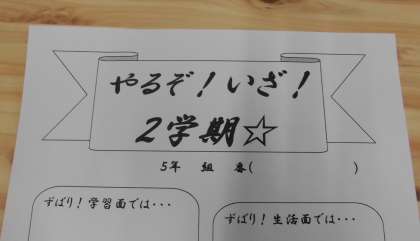 やるぞ！いざ！
2学期☆
5年　組　番(　　　　　　)
ずばり！学習面では・・・
ずばり！生活面では・・・